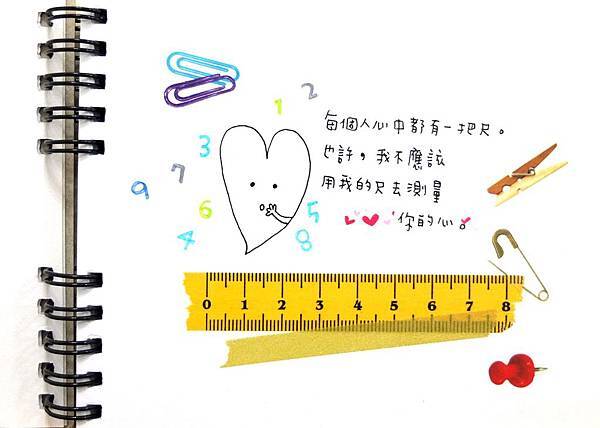 1
2
3
7
9
6
5
4
8
每個人心中都有一把尺。
也許，我不應該
用我的尺去測量
你的心。
0 1 2 3 4 5 6 7 8